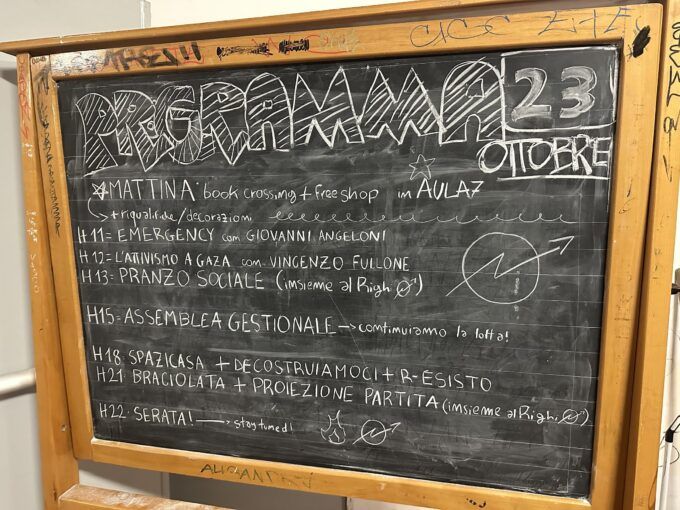 PROGRAMMA 23
OTTOBRE
MATTINA: book crossing + freeshop in AULA7
+ riqualifiche/decorazioni
H11= EMERGENCY con GIOVANNI ANGELONI
H12= L'ATTIVISMO A GAZA con VINCENZO FULLONE
H13= PRANZO SOCIALE (insieme al Righi)
H15= ASSEMBLEA GESTIONALE → continuiamo la lotta!
H18: SPAZICASA + DECOSTRUIAMOCI + R-ESISTO
H21: BRACIOLATA + PROIEZIONE PARTITA (insieme al Righi)
H22: SERATA! → stay tuned!